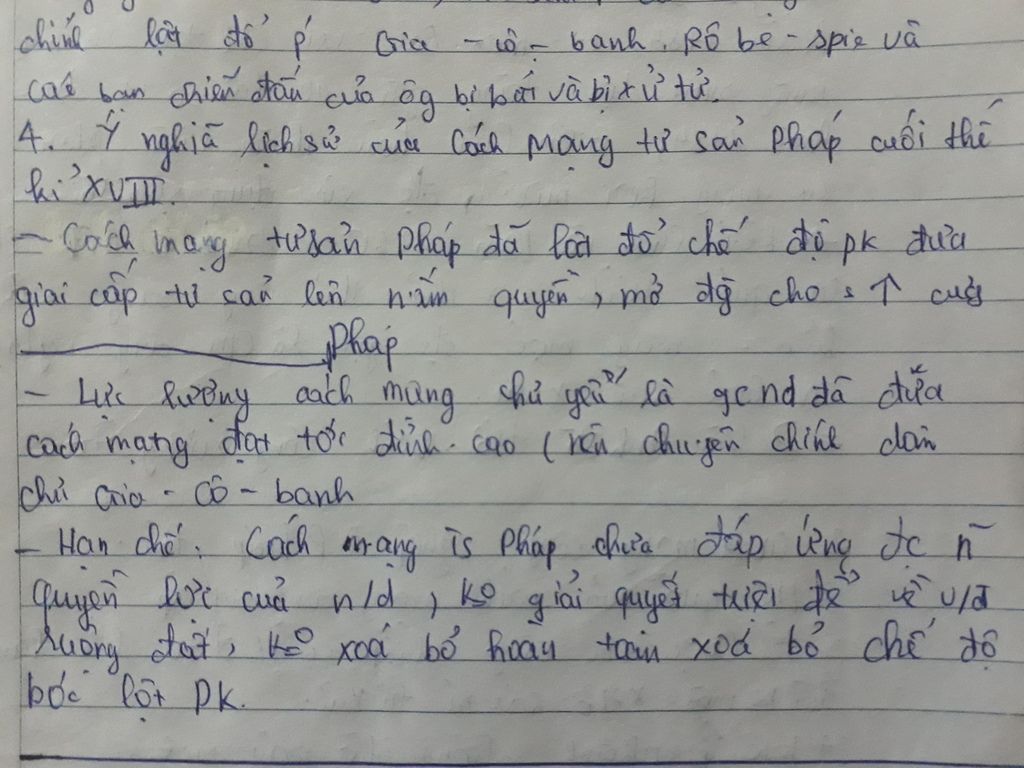 chính lật đổ p Gia - cô - banh. Rô be - spie và
các bạn chiến đấu của ôg bị bắt và bị xử tử.
4. Ý nghĩa lịch sử của Cách mạng tư sản Pháp cuối thế
kỉ XVIII.
- Cách mạng tư sản Pháp đã lật đổ chế độ pk đưa
giai cấp tư sản lên nắm quyền, mở đg cho s ↑ của
Pháp
- Lực lượng cách mạng chủ yếu là gcnd đã đưa
cách mạng đạt tới đỉnh cao (nền chuyên chính dân
chủ Gia - cô - banh
- Hạn chế: Cách mạng ts Pháp chưa đáp ứng đc n~
quyền lực của n/d, ko giải quyết triệt để về v/đ
ruộng đất, ko xoá bỏ hoàn toàn xoá bỏ chế độ
bóc lột pk.